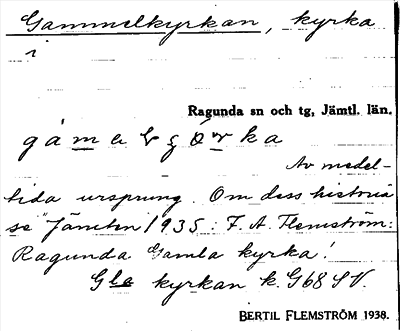 Gammelkyrkan, kyrka
i
Ragunda sn och tg, Jämtl. län.
Av medel-
tida ursprung. Om dess historia
se "Jämten 1935: F. A. Flemström:
Ragunda Gamla kyrka!
Gla kyrkan k. G68 SV.
BERTIL FLEMSTRÖM 1938.